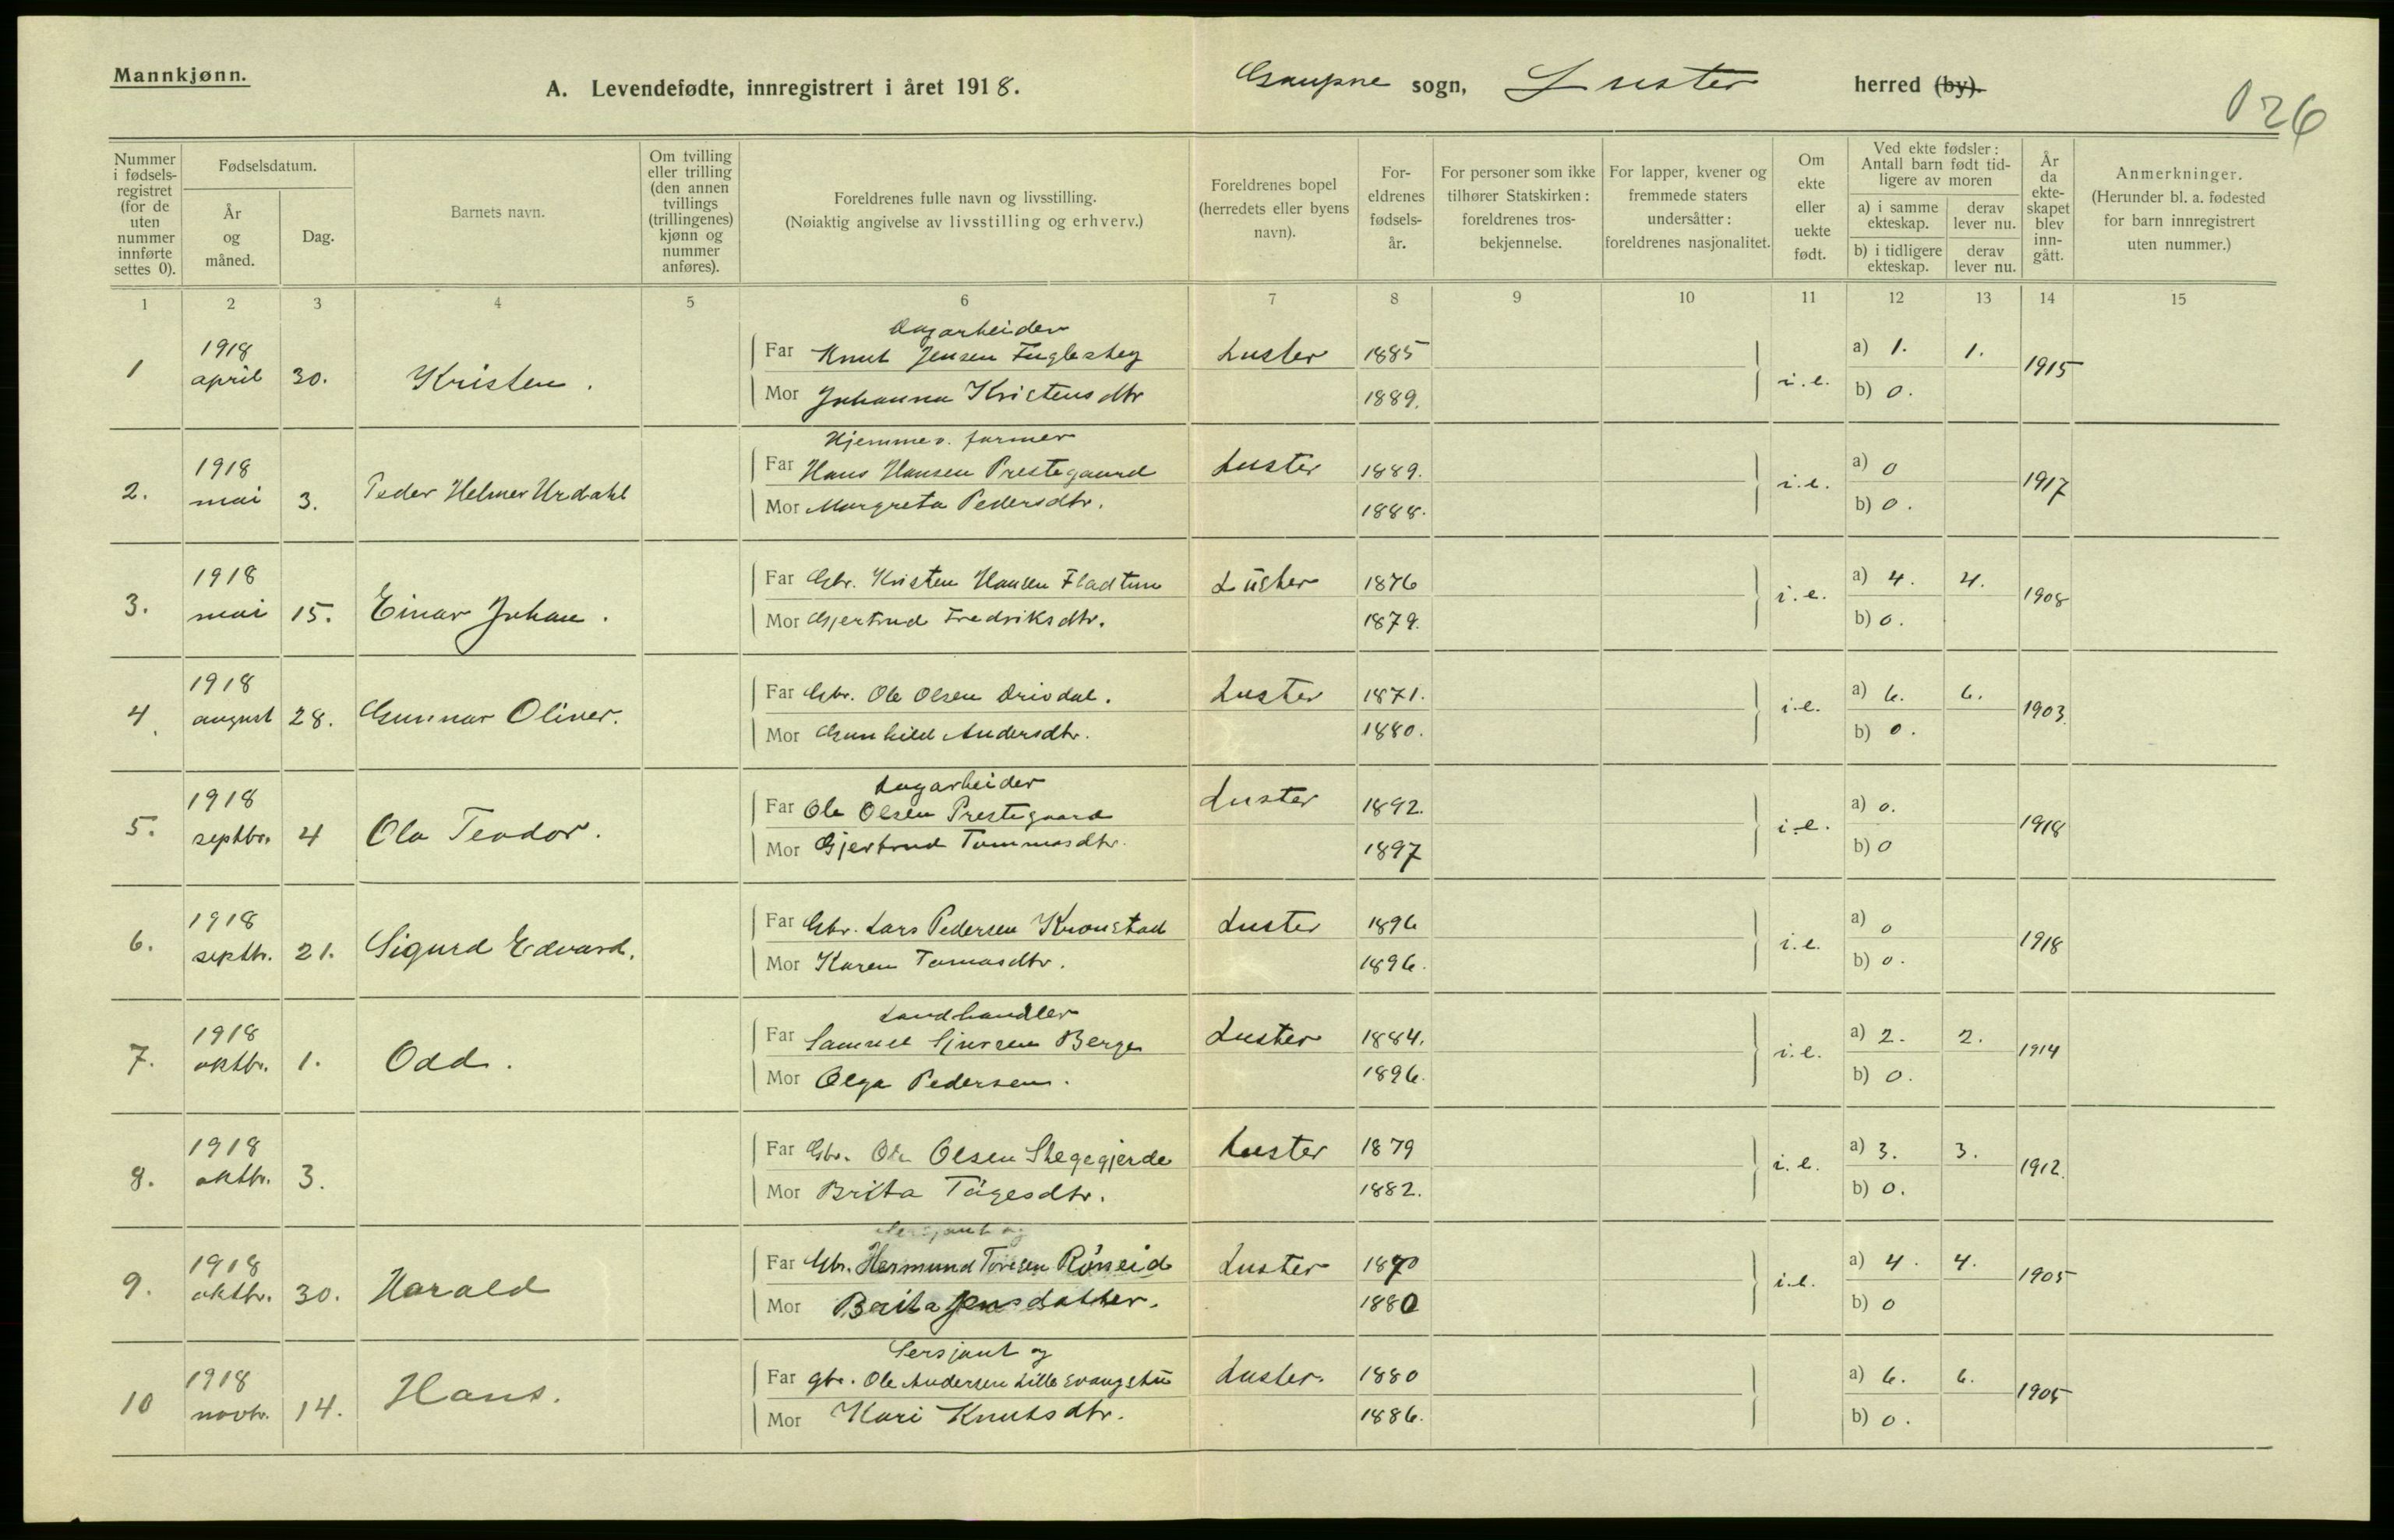 Mannkjønn.
A. Levendefødte, innregistrert i året 1918. Gaupne sogn, Luster herred (by).
126
Nummer i fødselsregistret (for de uten nummer innførte settes 0).
Fødselsdatum.
År og måned.
Dag.
Barnets navn.
Om tvilling eller trilling (den annen tvillings (trillingenes) kjønn og nummer anføres).
Foreldrenes fulle navn og livsstilling.
(Nøiaktig angivelse av livsstilling og erhverv.)
Foreldrenes bopel (herredets eller byens navn).
Foreldrenes fødselsår.
For personer som ikke tilhører Statskirken: foreldrenes trosbekjennelse.
For lapper, kvener og fremmede staters undersåtter: foreldrenes nasjonalitet.
Om ekte eller uekte født.
Ved ekte fødsler: Antall barn født tidligere av moren
a) i samme ekteskap. derav lever nu.
b) i tidligere ekteskap. derav lever nu.
År da ekteskapet blev inngått.
Anmerkninger.
(Herunder bl. a. fødested for barn innregistrert uten nummer.)
1 2 3 4 5 6 7 8 9 10 11 12 13 14 15
Dagarbeider
1 1918 april 30. Kristen. Far Knut Jensen Fuglesteg Luster 1885 i.e. a) 1. 1. 1915
Mor Johanna Kristensdtr 1889. b) 0.
Hjemmev. farmer
2. 1918 mai 3. Peder Helmer Urdahl Far Hans Hansen Prestegaard Luster 1889. i.e. a) 0 1917
Mor Margreta Pedersdtr. 1888. b) 0.
3. 1918 mai 15. Einar Johan. Far Gbr. Kristen Hansen Fladtun Luster 1876 i.e. a) 4. 4. 1908
Mor Gjertrud Fredriksdtr. 1879. b) 0.
4. 1918 august 28. Gunnar Oliver. Far Gbr. Ole Olsen Drivdal. Luster 1871. i.e. a) 6. 6. 1903.
Mor Gunhild Andersdtr. 1880. b) 0.
Dagarbeider
5. 1918 septbr. 4 Ola Teodor. Far Ole Olsen Prestegaard Luster 1892. i.e. a) 0. 1918
Mor Gjertrud Tommasdtr. 1897 b) 0
6. 1918 septbr. 21. Sigurd Edvard. Far Gbr. Lars Pedersen Kronstad Luster 1896 i.e. a) 0 1918
Mor Karen Tomasdtr. 1896. b) 0.
Landhandler
7. 1918 oktbr. 1. Odd. Far Samuel Sjursen Berge Luster 1884. i.e. a) 2. 2. 1914
Mor Olga Pedersen. 1896. b) 0.
8. 1918 oktbr. 3. Far Gbr. Ole Olsen Skegegjerde Luster 1879 i.e. a) 3. 3. 1912.
Mor Brita Tøgesdtr. 1882. b) 0.
Sersjant og
9. 1918 oktbr. 30. Harald Far Gbr. Hermund Toresen Røneid Luster 1870 i.e. a) 4. 4. 1905
Mor Brita Jensdatter. 1880 b) 0
Sersjant og
10 1918 novbr. 14. Hans. Far gbr. Ole Andersen Lille Luster. 1880 a) 6. 6. 1905
Mor Kari Knutsdtr. 1886. b) 0.